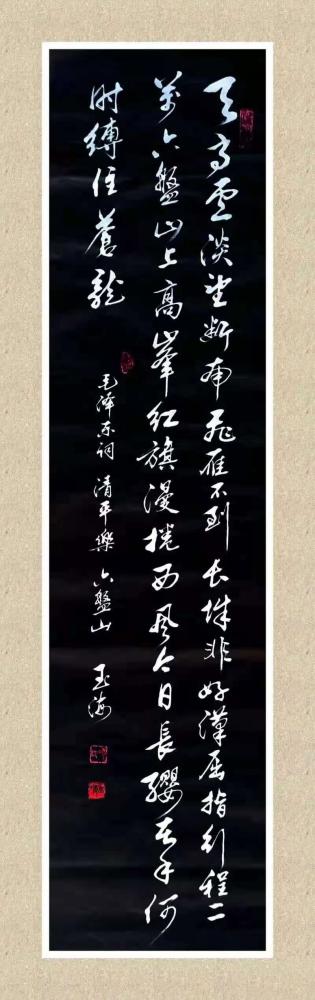 天高雲淡望断南飛雁不到長城非好漢屈指行程二
萬六盤山上高峰紅旗漫捲西風今日長纓在手何
时縛住蒼龍
毛泽东词清平樂六盤山 玉海